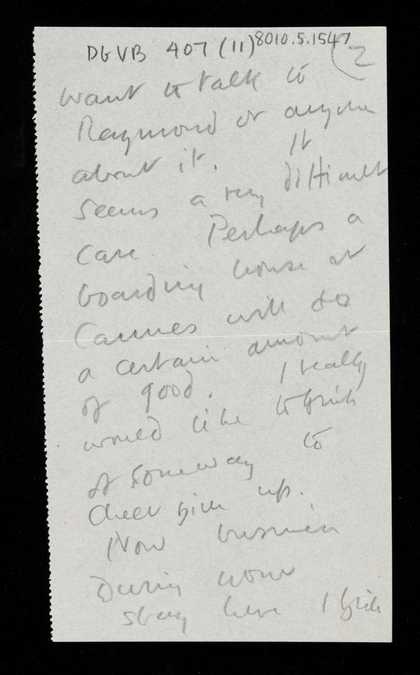 DGVB 407 (11) 8010.5.1547
2
want to talk to
Raymond or anyone
about it. It
seems a very difficult
case Perhaps a
boarding house at
Cannes will do
a certain amount
of good. I really
would like to think
of some way to
cheer him up.
Now business
During your
stay here I think